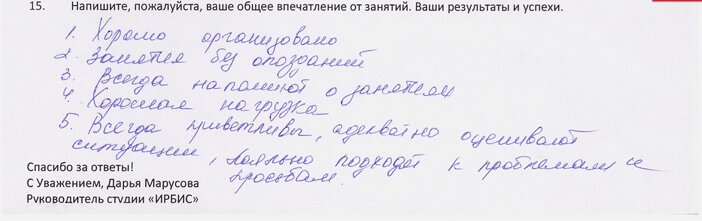 15. Напишите, пожалуйста, ваше общее впечатление от занятий. Ваши результаты и успехи.
1. Хорошо организовано
2. Занятия без опозданий
3. Всегда напомнют о занятиях
4. Хорошая нагрузка
5. Всегда приветливы, адекватно оценивают
ситуации, лояльно подходят к проблемам и
просьбам.
Спасибо за ответы!
С Уважением, Дарья Марусова
Руководитель студии «ИРБИС»